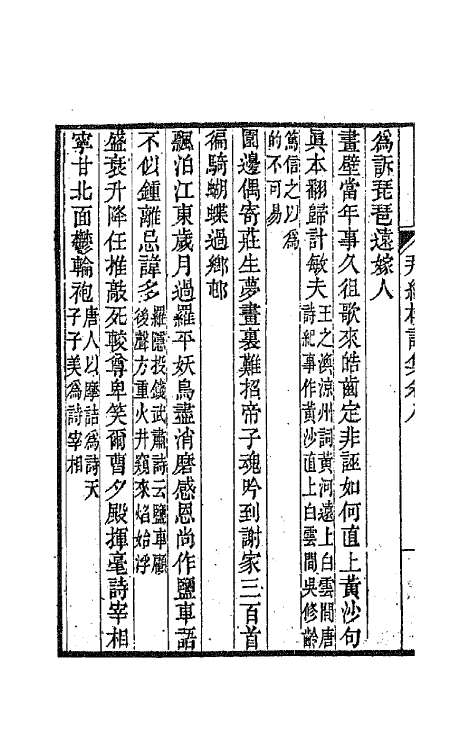 爲訴琵琶遠嫁人
畫壁當年事久徂歌來皓齒定非誣如何直上黃沙句
眞本翻歸計敏夫
王之渙涼州詞黃河遠上白雲間唐
詩紀事作黃沙直上白雲間吳修齡
篤信之以爲
的不可易
園邊偶寄莊生夢畫裏難招帝子魂吟到謝家三百首
徧騎蝴蝶過鄉邨
飄泊江東歲月過羅平妖鳥盡消磨感恩尚作鹽車語
不似鍾離忌諱多
羅隱投錢武肅詩云鹽車顧
後聲方重火井窺來焰始浮
盛衰升降任推敲死較尊卑笑爾曹夕殿揮毫詩宰相
寧甘北面鬱輪袍
唐人以摩詰爲詩天
子子美爲詩宰相